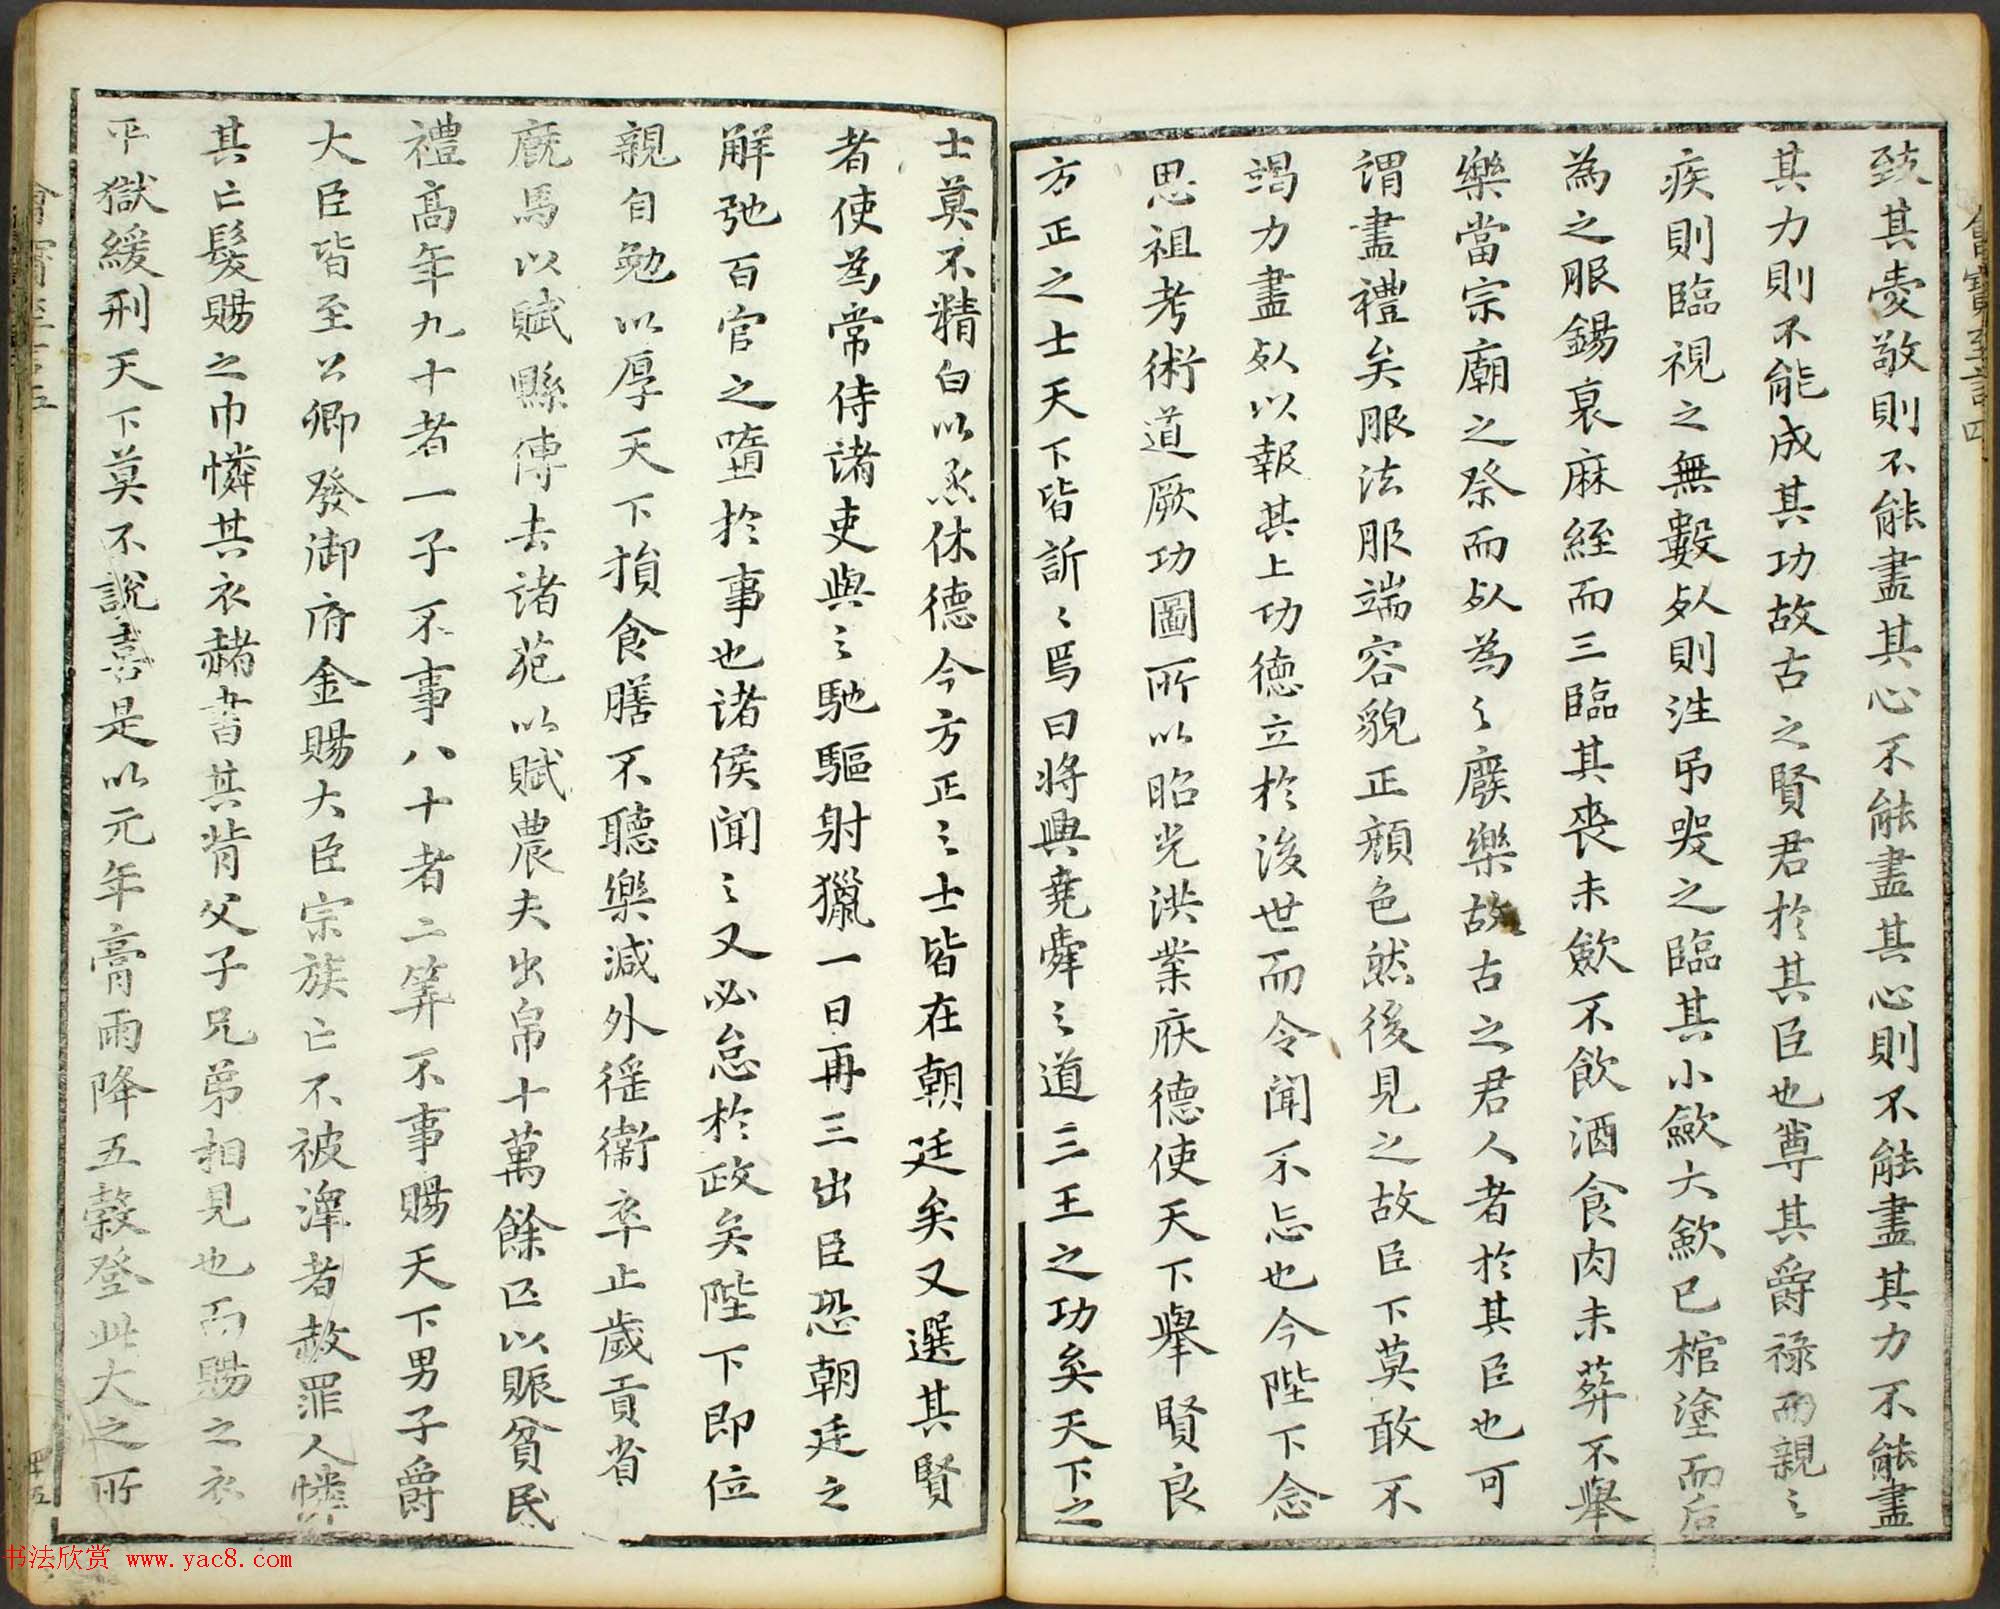 致其愛敬則不能盡其心不能盡其心則不能盡其力不能盡
其力則不能成其功故古之賢君於其臣也尊其爵祿而親之
疾則臨視之無數死則往吊哭之臨其小歛大歛已棺塗而后
為之服錫衰麻絰而三臨其喪未歛不飲酒食肉未葬不舉
樂當宗廟之祭而死為之廢樂故古之君人者於其臣也可
謂盡禮矣服法服端容貌正顏色然後見之故臣下莫敢不
竭力盡死以報其上功德立於後世而令聞不忘也今陛下念
思祖考術追厥功圖所以昭光洪業庥德使天下舉賢良
方正之士天下皆訢〻焉曰將興堯舜之道三王之功矣天下之
士莫不精白以烝休德今方正之士皆在朝廷矣又選其賢
者使為常侍諸吏與之馳驅射獵一日再三出臣恐朝廷之
解弛百官之墮於事也諸侯聞之又必怠於政矣陛下即位
親自勉以厚天下損食膳不聽樂減外徭衛卒止歲貢省
廐馬以賦縣傳去諸苑以賦農夫出帛十萬餘匹以賑貧民
禮高年九十者一子不事八十者二筭不事賜天下男子爵
大臣皆至公卿發御府金賜大臣宗族亡不被澤者赦罪人憐
其亡髮賜之巾憐其衣赭書其背父子兄弟相見也而賜之衣
平獄緩刑天下莫不說喜是以元年膏雨降五穀登此大之所
會寶至言四
會寶至言五
書法欣賞 www.yac8.com